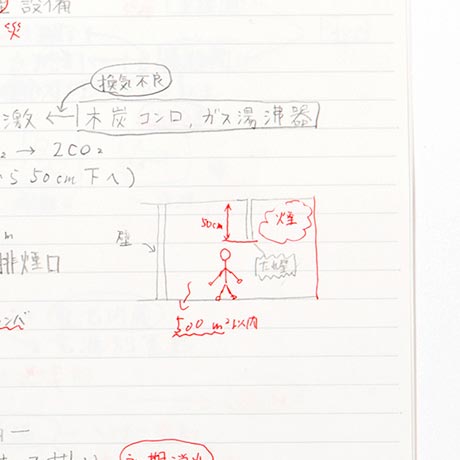 設備
災
換気不良
激 ← 木炭コンロ, ガス湯沸器
₂ → 2CO₂
ら 50cm 下へ)
50cm 煙
m 壁
排煙口
たれ壁
ンバ 500 m²以内
ー